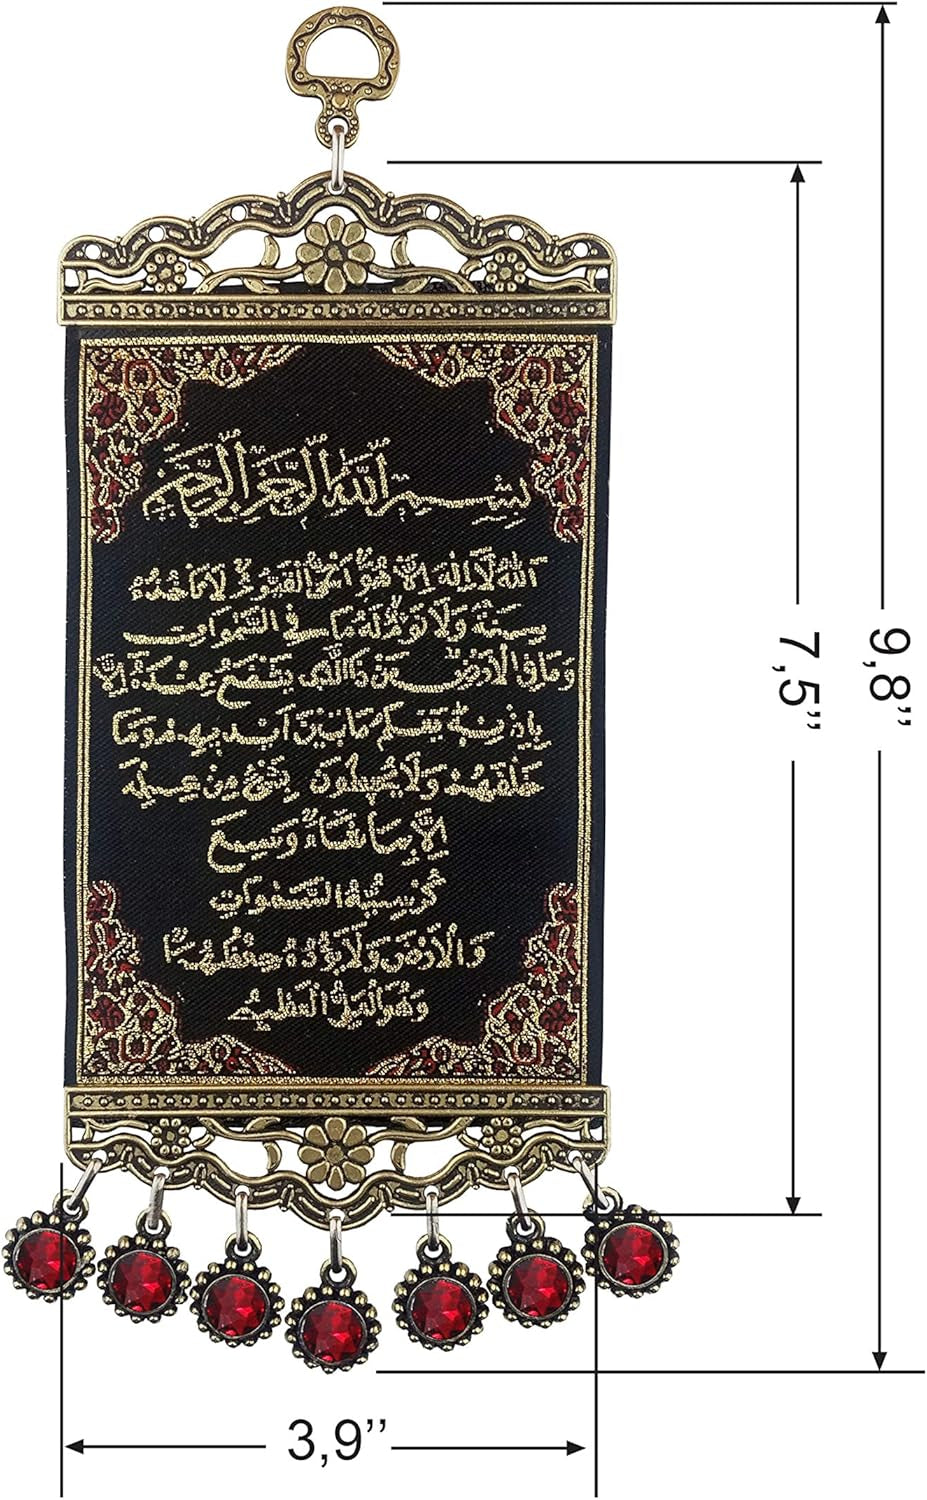 بسم الله الرحمن الرحيم
الله لا إله إلا هو الحي القيوم لا تأخذه
سنة ولا نوم له ما في السموات
وما في الأرض من ذا الذي يشفع عنده إلا
بإذنه يعلم ما بين أيديهم وما
خلفهم ولا يحيطون بشئ من علمه
إلا بما شاء وسع
كرسيه السموات
والأرض ولا يؤده حفظهما
وهو العلي العظيم
9,8’’
7,5’’
3,9’’